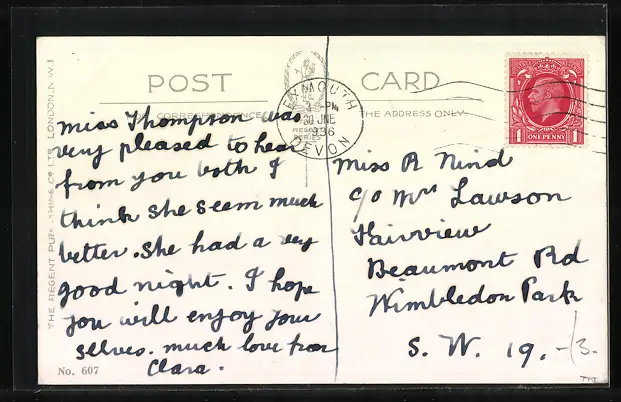 POST CARD
CORRESPONDENCE
THE ADDRESS ONLY
EXMOUTH
PM
30 JNE
1936
DEVON
ONE PENNY
1 1
THE REGENT PUBLISHING CO LTD, LONDON. N.W.1
Miss Thompson was
very pleased to hear
from you both I
think she seem much
better. She had a very
good night. I hope
you will enjoy your
selves. much love from
Clara.
Miss R Nind
c/o Mrs Lawson
Fairview
Beaumont Rd
Wimbledon Park
S. W. 19.
/3.
No. 607